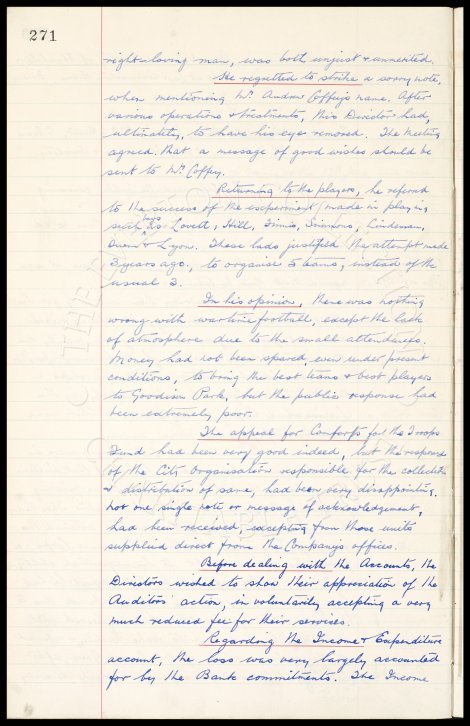 271
right-loving man, was both unjust & unmerited.
He regretted to strike a sorry note,
when mentioning Mr Andrew Coffey's name. After
various operations & treatments, this Director had,
ultimately, to have his eye removed. The Meeting
agreed that a message of good wishes should be
sent to Mr Coffey.
Returning to the players, he referred
to the success of the experiment made in playing
such boys as Lovett, Hill, Simmons, Lindeman,
Owen & Lyon. These lads justified the attempt made
3 years ago, to organise 5 teams, instead of the
usual 3.
In his opinion, there was nothing
wrong with wartime football, except the lack
of atmosphere due to the small attendances.
Money had not been spared, even under present
conditions, to bring the best teams & best players
to Goodison Park, but the public response had
been extremely poor.
The appeal for Comforts for the Troops
Fund had been very good indeed, but the response
of the City Organisation responsible for the collection
& distribution of same, had been very disappointing.
Not one single note or message of acknowledgement,
had been received, excepting from those units
supplied direct from the Company's offices.
Before dealing with the Accounts, the
Directors wished to show their appreciation of the
Auditors' action, in voluntarily accepting a very
much reduced fee for their services.
Regarding the Income & Expenditure
account, the loss was very largely accounted
for by the Bank commitments. The Income